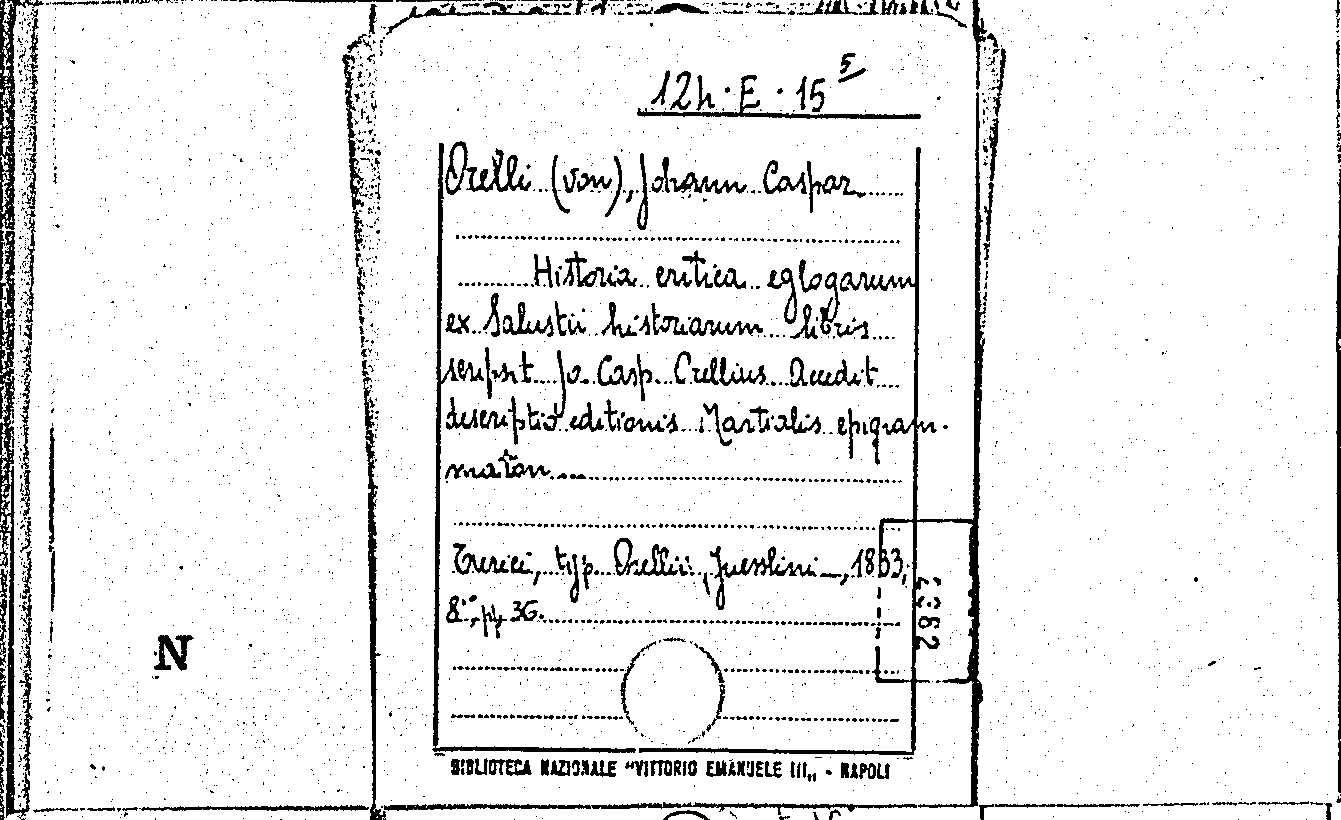 12h·E·15 5
Orelli (von), Johann Caspar
Historia critica eglogarum
ex Salustii historiarum libris
scripsit Jo. Casp. Orellius. Accedit
descriptio editionis Martialis epigram-
maton...
Turici, typ. Orellii, Fuesslini _, 1833,
8°, pp. 36.
N
BIBLIOTECA NAZIONALE "VITTORIO EMANUELE III„ - NAPOLI